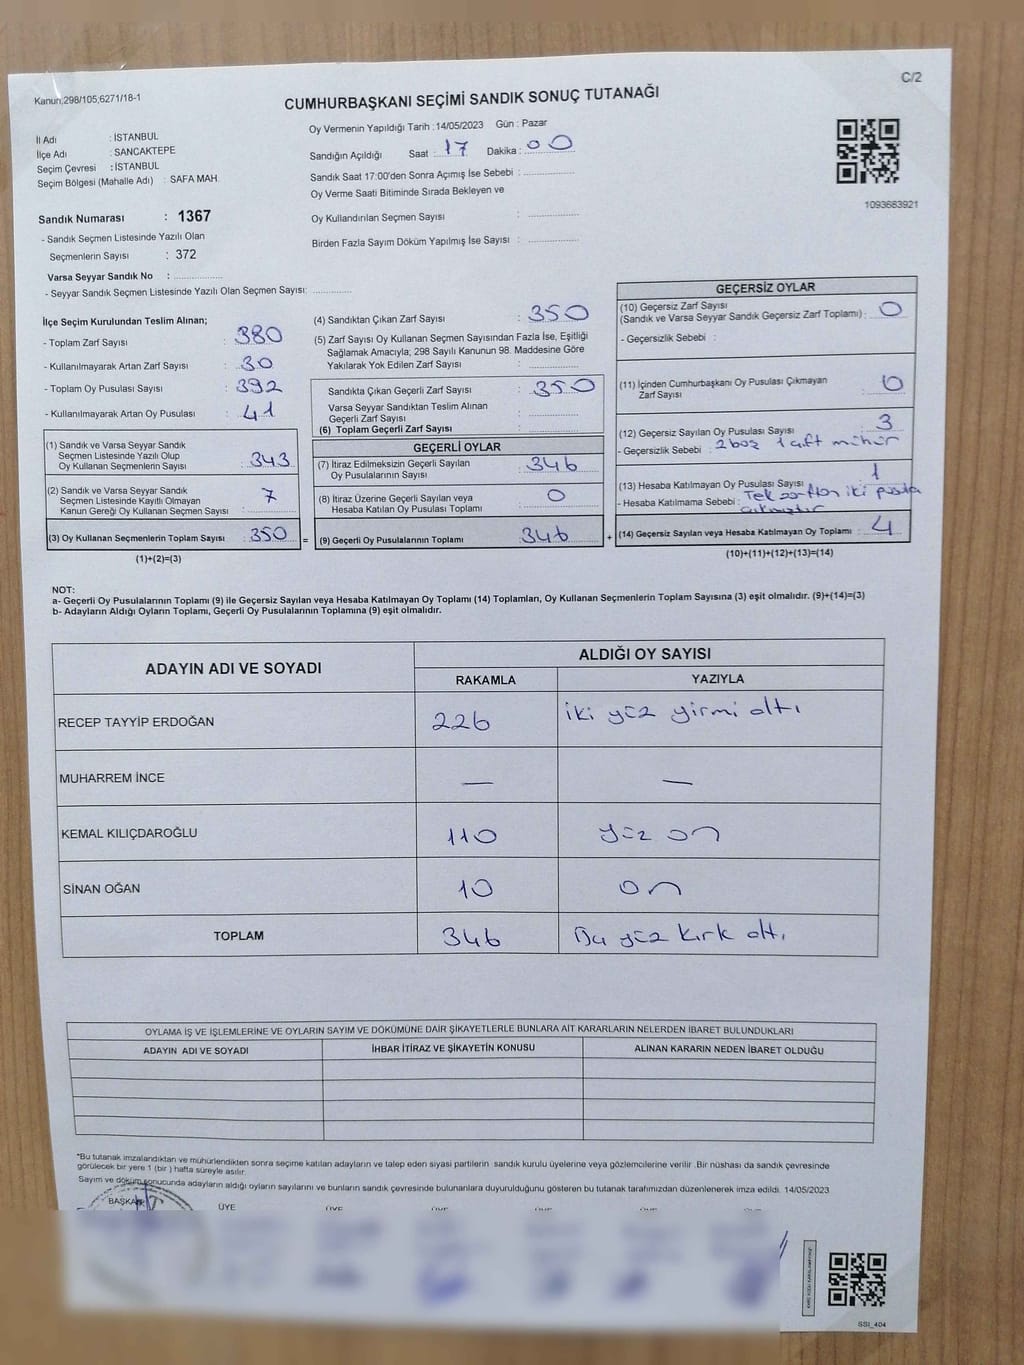 Kanun:298/105;6271/18-1
C/2
CUMHURBAŞKANI SEÇİMİ SANDIK SONUÇ TUTANAĞI
İl Adı : İSTANBUL
İlçe Adı : SANCAKTEPE
Seçim Çevresi : İSTANBUL
Seçim Bölgesi (Mahalle Adı) : SAFA MAH.
Sandık Numarası : 1367
- Sandık Seçmen Listesinde Yazılı Olan
Seçmenlerin Sayısı : 372
Varsa Seyyar Sandık No : ..............
- Seyyar Sandık Seçmen Listesinde Yazılı Olan Seçmen Sayısı: ............
Oy Vermenin Yapıldığı Tarih : 14/05/2023 Gün : Pazar
Sandığın Açıldığı Saat : 17 Dakika : 00
Sandık Saat 17:00'den Sonra Açımış İse Sebebi : ..............
Oy Verme Saati Bitiminde Sırada Bekleyen ve
Oy Kullandırılan Seçmen Sayısı : ..............
Birden Fazla Sayım Döküm Yapılmış İse Sayısı : ..............
1093683921
İlçe Seçim Kurulundan Teslim Alınan;
- Toplam Zarf Sayısı : 380
- Kullanılmayarak Artan Zarf Sayısı : 30
- Toplam Oy Pusulası Sayısı : 392
- Kullanılmayarak Artan Oy Pusulası : 41
(1) Sandık ve Varsa Seyyar Sandık
Seçmen Listesinde Yazılı Olup
Oy Kullanan Seçmenlerin Sayısı : 343
(2) Sandık ve Varsa Seyyar Sandık
Seçmen Listesinde Kayıtlı Olmayan
Kanun Gereği Oy Kullanan Seçmen Sayısı : 7
(3) Oy Kullanan Seçmenlerin Toplam Sayısı : 350 =
(1)+(2)=(3)
(4) Sandıktan Çıkan Zarf Sayısı : 350
(5) Zarf Sayısı Oy Kullanan Seçmen Sayısından Fazla İse, Eşitliği
Sağlamak Amacıyla; 298 Sayılı Kanunun 98. Maddesine Göre
Yakılarak Yok Edilen Zarf Sayısı : ..............
Sandıkta Çıkan Geçerli Zarf Sayısı : 350
Varsa Seyyar Sandıktan Teslim Alınan
Geçerli Zarf Sayısı : ..............
(6) Toplam Geçerli Zarf Sayısı : ..............
GEÇERLİ OYLAR
(7) İtiraz Edilmeksizin Geçerli Sayılan
Oy Pusulalarının Sayısı : 346
(8) İtiraz Üzerine Geçerli Sayılan veya
Hesaba Katılan Oy Pusulası Toplamı : 0
(9) Geçerli Oy Pusulalarının Toplamı : 346 +
GEÇERSİZ OYLAR
(10) Geçersiz Zarf Sayısı
(Sandık ve Varsa Seyyar Sandık Geçersiz Zarf Toplamı) : 0
- Geçersizlik Sebebi :
(11) İçinden Cumhurbaşkanı Oy Pusulası Çıkmayan
Zarf Sayısı : 0
(12) Geçersiz Sayılan Oy Pusulası Sayısı : 3
- Geçersizlik Sebebi : 2 boş 1 çift mühür
(13) Hesaba Katılmayan Oy Pusulası Sayısı : 1
- Hesaba Katılmama Sebebi : Tek zarftan iki pusula
çıkmıştır
(14) Geçersiz Sayılan veya Hesaba Katılmayan Oy Toplamı : 4
(10)+(11)+(12)+(13)=(14)
NOT:
a- Geçerli Oy Pusulalarının Toplamı (9) ile Geçersiz Sayılan veya Hesaba Katılmayan Oy Toplamı (14) Toplamları, Oy Kullanan Seçmenlerin Toplam Sayısına (3) eşit olmalıdır. (9)+(14)=(3)
b- Adayların Aldığı Oyların Toplamı, Geçerli Oy Pusulalarının Toplamına (9) eşit olmalıdır.
ADAYIN ADI VE SOYADI
ALDIĞI OY SAYISI
RAKAMLA YAZIYLA
RECEP TAYYİP ERDOĞAN 226 iki yüz yirmi altı
MUHARREM İNCE — —
KEMAL KILIÇDAROĞLU 110 yüz on
SİNAN OĞAN 10 on
TOPLAM 346 Üç yüz kırk altı
OYLAMA İŞ VE İŞLEMLERİNE VE OYLARIN SAYIM VE DÖKÜMÜNE DAİR ŞİKAYETLERLE BUNLARA AİT KARARLARIN NELERDEN İBARET BULUNDUKLARI
ADAYIN ADI VE SOYADI İHBAR İTİRAZ VE ŞİKAYETİN KONUSU ALINAN KARARIN NEDEN İBARET OLDUĞU
*Bu tutanak imzalandıktan ve mühürlendikten sonra seçime katılan adayların ve talep eden siyasi partilerin sandık kurulu üyelerine veya gözlemcilerine verilir .Bir nüshası da sandık çevresinde
görülecek bir yere 1 (bir ) hafta süreyle asılır.
Sayım ve döküm sonucunda adayların aldığı oyların sayılarını ve bunların sandık çevresinde bulunanlara duyurulduğunu gösteren bu tutanak tarafımızdan düzenlenerek imza edildi. 14/05/2023
BAŞKAN ÜYE ÜYE ÜYE ÜYE ÜYE ÜYE
SSI_404